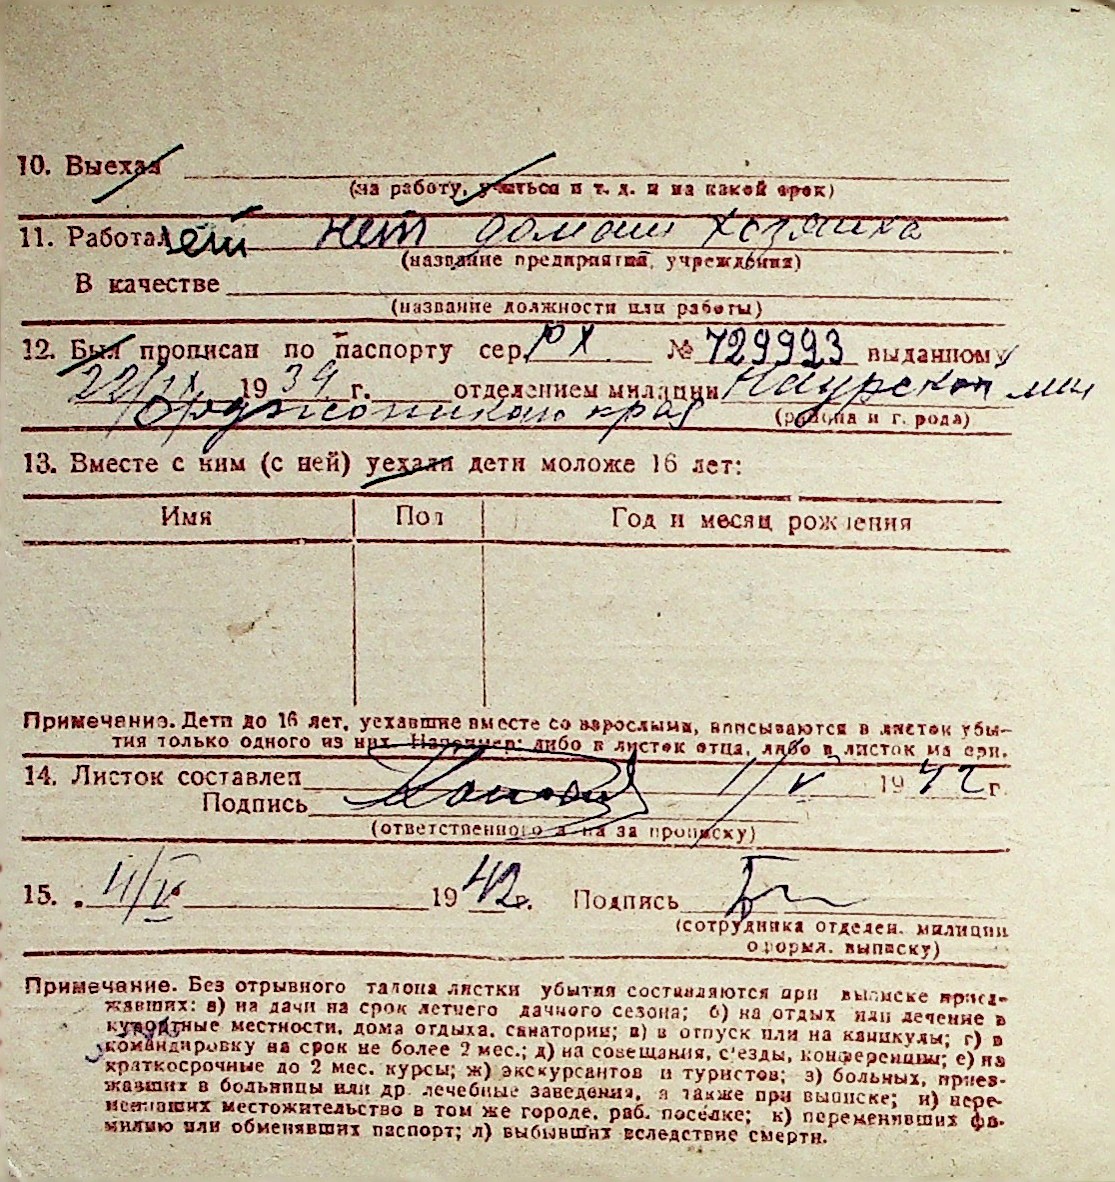 10. Выехал
(на работу, учиться и т. д. и на какой срок)
11. Работает нет домаш хозяйка
(название предприятия, учреждения)
В качестве
(название должности или работы)
12. Был прописан по паспорту сер. РХ № 729993 выданному
22/IX 1939 г. отделением милиции Наурским мил
Орджоникон края
(района и города)
13. Вместе с ним (с ней) уехали дети моложе 16 лет:
Имя Пол Год и месяц рождения
Примечание. Дети до 16 лет, уехавшие вместе со взрослыми, вписываются в листок убы-
тия только одного из них. Например: либо в листок отца, либо в листок матери.
14. Листок составлен 1/V 1942 г.
Подпись
(ответственного лица за прописку)
15. 4/V 1942 г. Подпись
(сотрудника отделен. милиции
оформл. выписку)
Примечание. Без отрывного талона листки убытия составляются при выписке приез-
жавших: а) на дачи на срок летнего дачного сезона; б) на отдых или лечение в
курортные местности, дома отдыха, санатории; в) в отпуск или на каникулы; г) в
командировку на срок не более 2 мес.; д) на совещания, с'езды, конференции; е) на
краткосрочные до 2 мес. курсы; ж) экскурсантов и туристов; з) больных, приез-
жавших в больницы или др. лечебные заведения, а также при выписке; и) пере-
менивших местожительство в том же городе, раб. поселке; к) переменивших фа-
милию или обменявших паспорт; л) выбывших вследствие смерти.